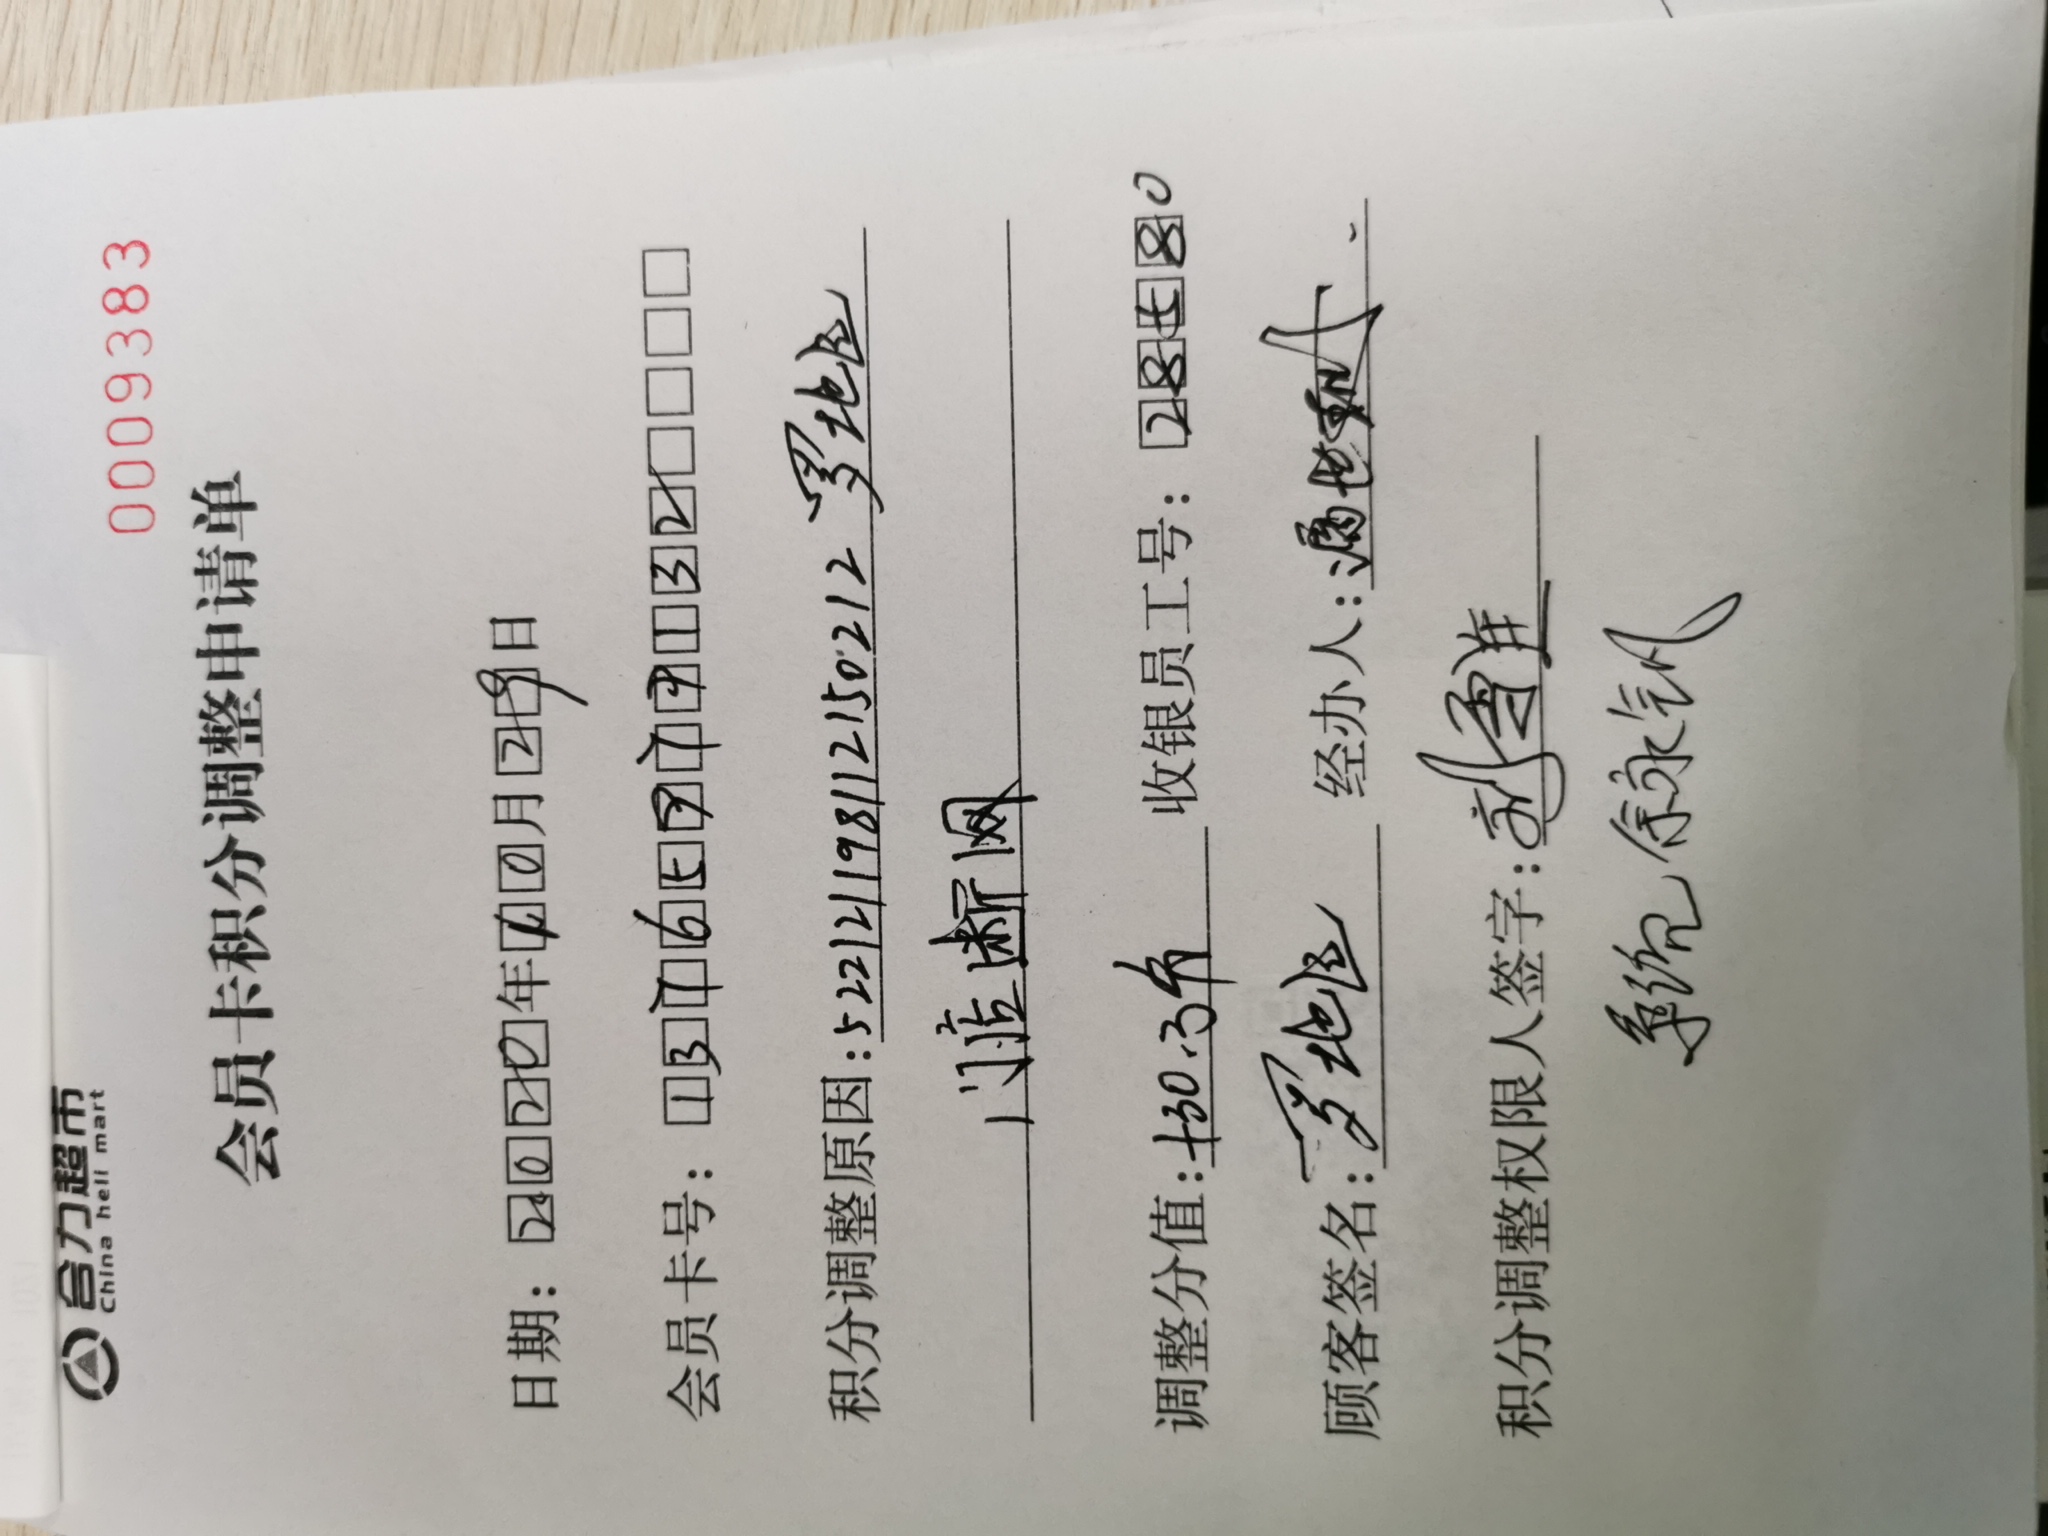 合力超市
China heli mart
0009383
会员卡积分调整申请单
日期：2020年10月29日
会员卡号：13765979132
积分调整原因：522121198112150212 罗地区
门店断网
调整分值：+30.3分 收银员工号：28580
顾客签名：罗地区 经办人：
积分调整权限人签字：
系统 余永